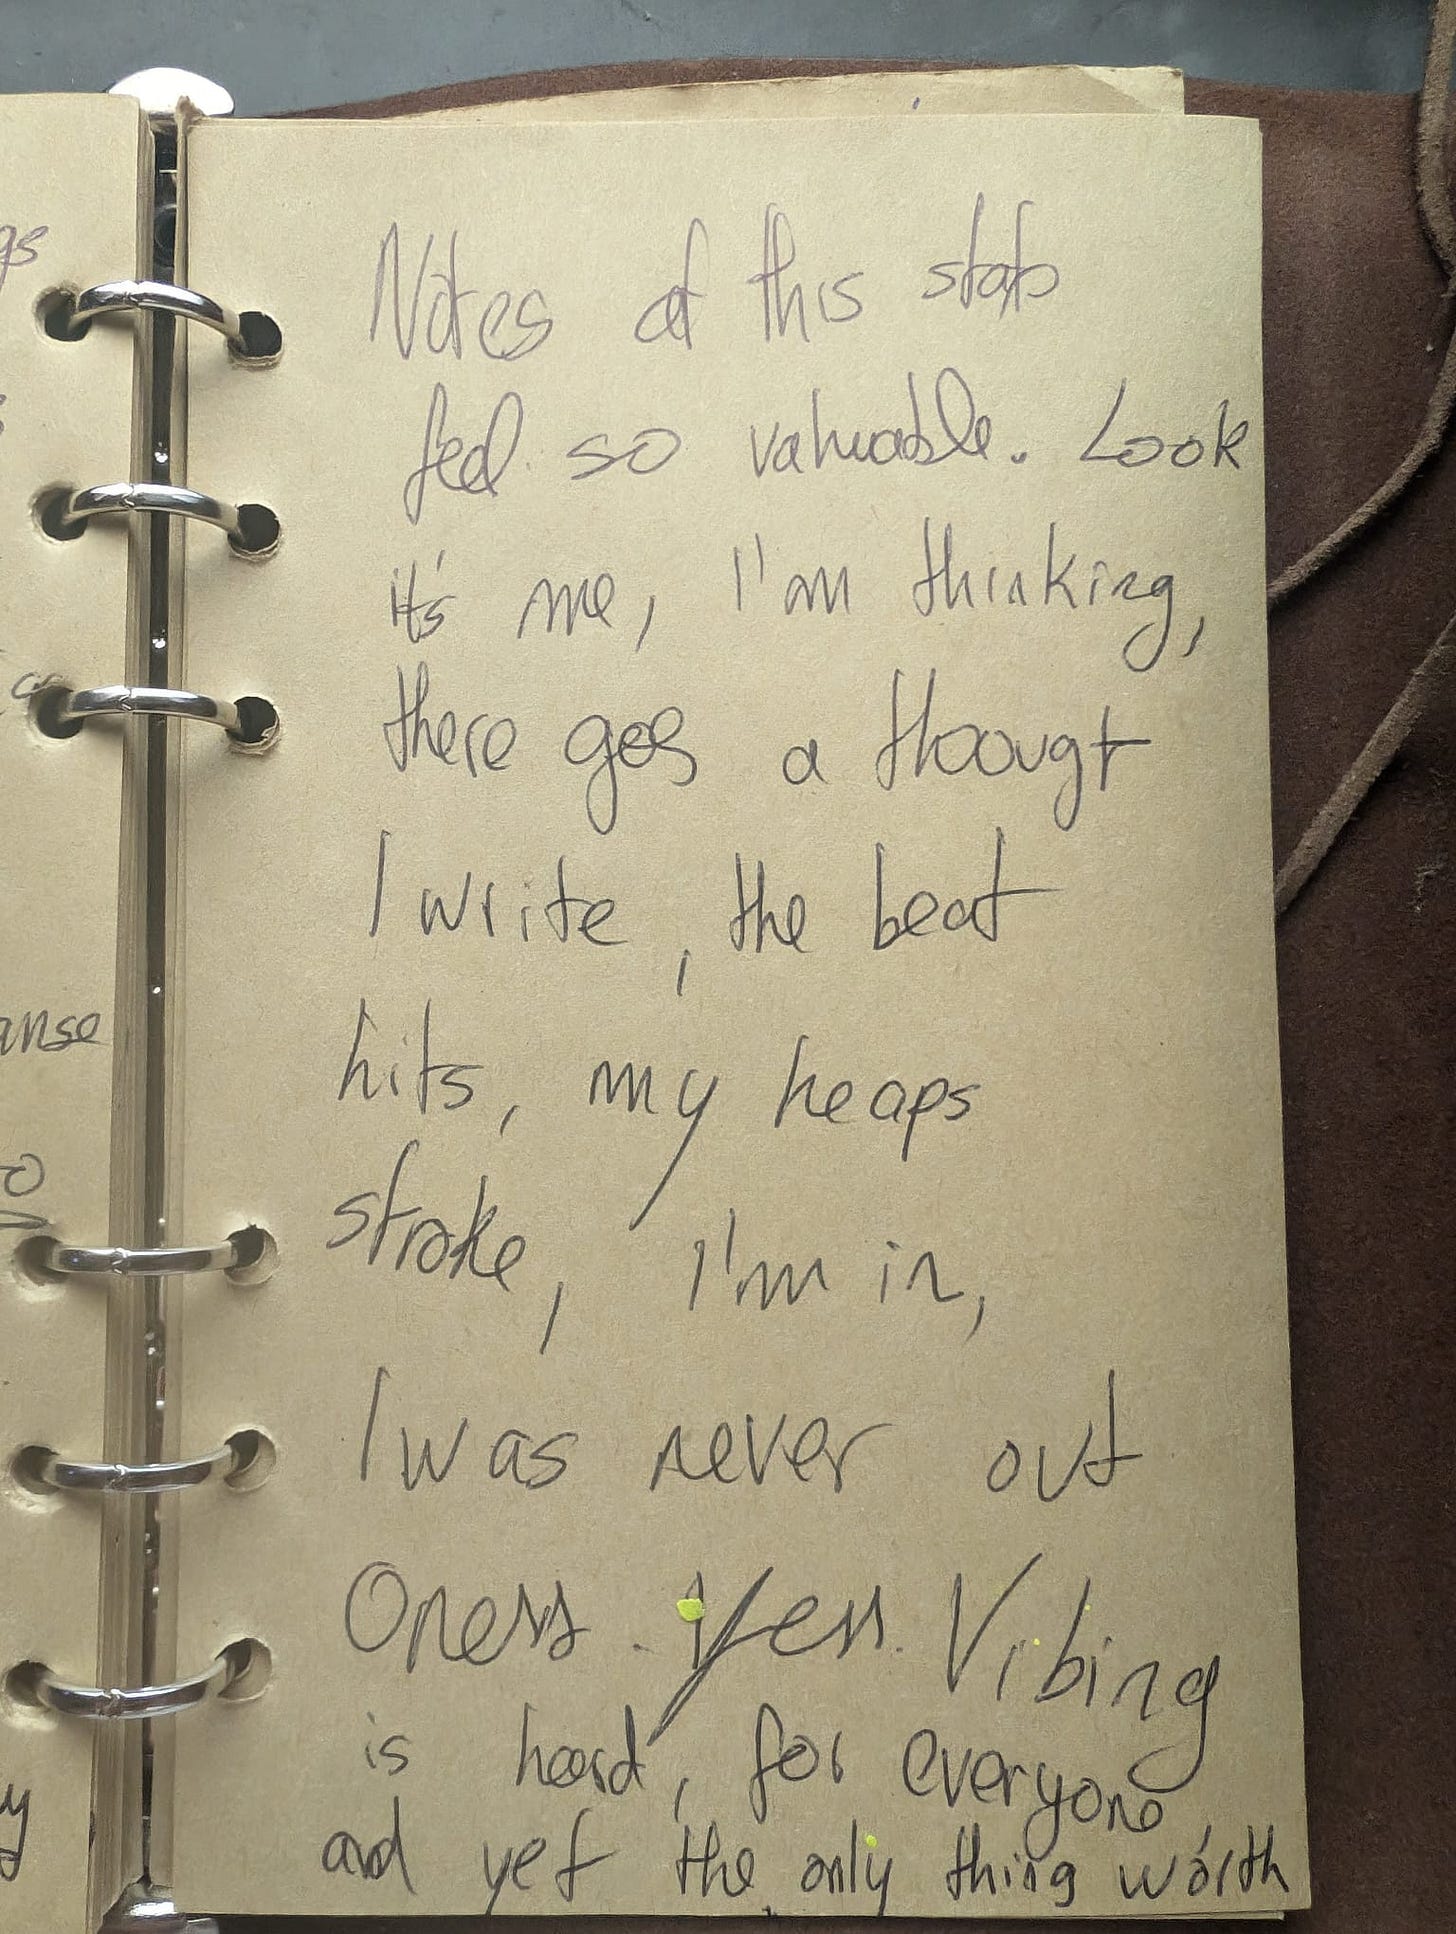 gs
anse
Notes of this state
feel so valuable. Look
it's me, I'm thinking,
there goes a thougt
I write, the beat
hits, my heaps
stroke, I'm in,
I was never out
Oness. Yess. Vibing
is heard, for everyone
and yet the only thing worth